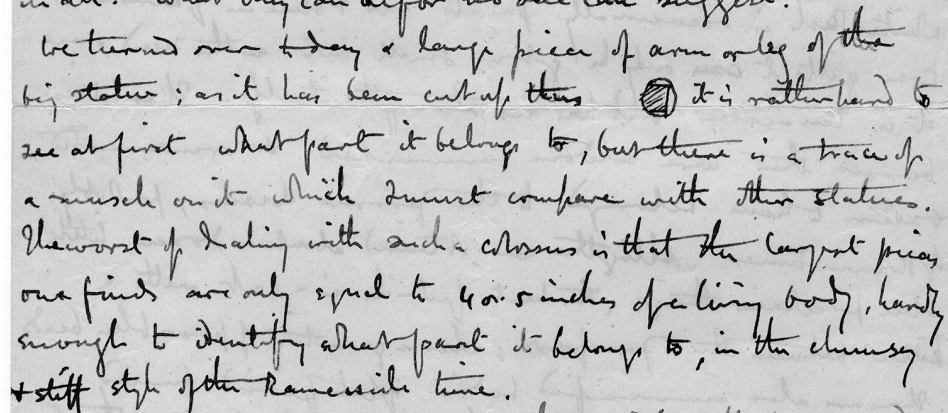 in all. What they can all for no one can suggest.
We turned over today a large piece of arm or leg of the
big statue; as it has been cut up thus it is rather hard to
see at first what part it belongs to, but there is a trace of
a muscle on it which I must compare with other statues.
The worst of dealing with such a colossus is that the largest pieces
one finds are only equal to 4 or 5 inches of a living body, hardly
enough to identify what part it belongs to, in the clumsy
& stiff style of the Ramesside time.